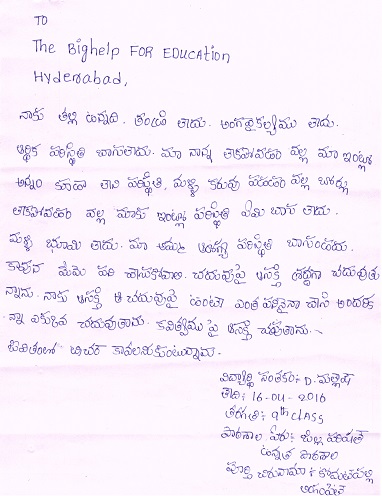 TO
The BigHelp FOR EDUCATION
Hyderabad,
నాకు తల్లి ఉన్నది. తండ్రి లేడు. అంగవైకల్యము లేదు.
ఆర్థిక పరిస్థితి బాగులేదు. మా నాన్న లేకపోవడం వల్ల మా ఇంట్లో
అన్నం కూడా లేని పరిస్థితి, మళ్ళీ కరువు పడడం వల్ల బోర్లు
లేకపోవడం వల్ల మాకు ఇంట్లో పరిస్థితి ఏమి బాగ లేదు.
మళ్ళి భూమి లేదు. మా అమ్మ పరిస్థితి బాగుండదు.
కావున మేమె పని చేసుకోవాలి. చదువుపై ఆసక్తి శ్రద్ధగా చదువుతు
న్నాను. నాకు ఆసక్తి ఆ చదువుపై ఉంటే ఎంత పనికైనా చేసి అందరిక
న్నా ఎక్కువ చదువుతాను. కవిత్వము పై ఆసక్తి చూపుతాను.
జీవితంలో టీచర్ కావలనుకుంటున్నాను.
విద్యార్థి సంతకం: D. మల్లేష్
తేది: 16-04-2016
తరగతి: 9th CLASS
పాఠశాల పేరు: జిల్లా పరిషత్
ఉన్నత పాఠశాల
పూర్తి చిరునామా: